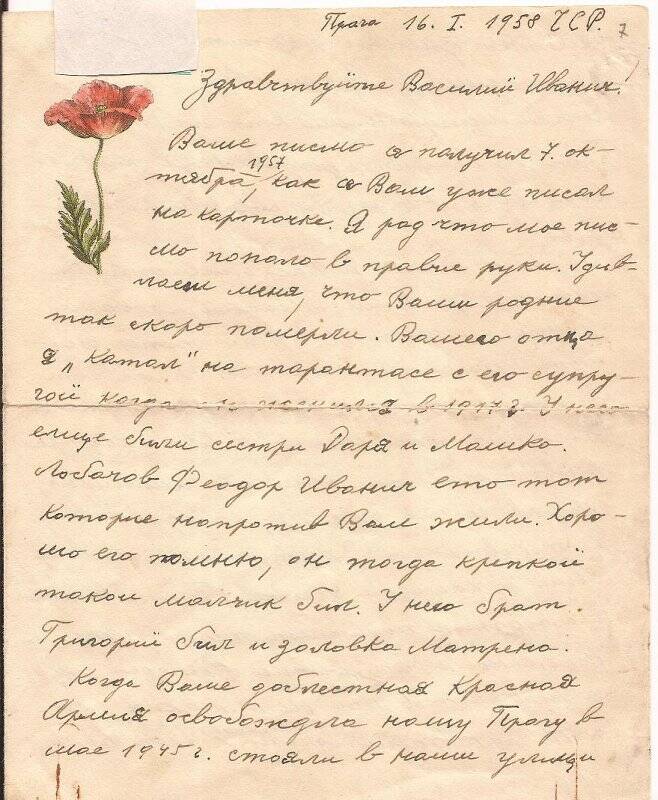 Прага 16. I. 1958 ČСР. 7
Здравствуйте Василий Иванич!
Ваше писмо я получил 7. ок-
1957
тября, как я Вам уже писал
на карточке. Я рад что мое пис-
мо попало в правие руки. Удив-
ляет меня, что Ваши родние
так скоро померли. Вашего отца
я „катал" на тарантасе с его супру-
гой когда он женился в 1917 г. У него
еще били сестри Даря и Машко.
Лобачов Феодор Иванич ето тот
которие напротив Вам жили. Хоро-
шо его помню, он тогда крепкой
такой малчик бил. У него брат
Григорий бил и золовка Матрена.
Когда Ваше доблестная Красная
Армия освобождла нашу Прагу в
мае 1945 г. стояли в наши улици